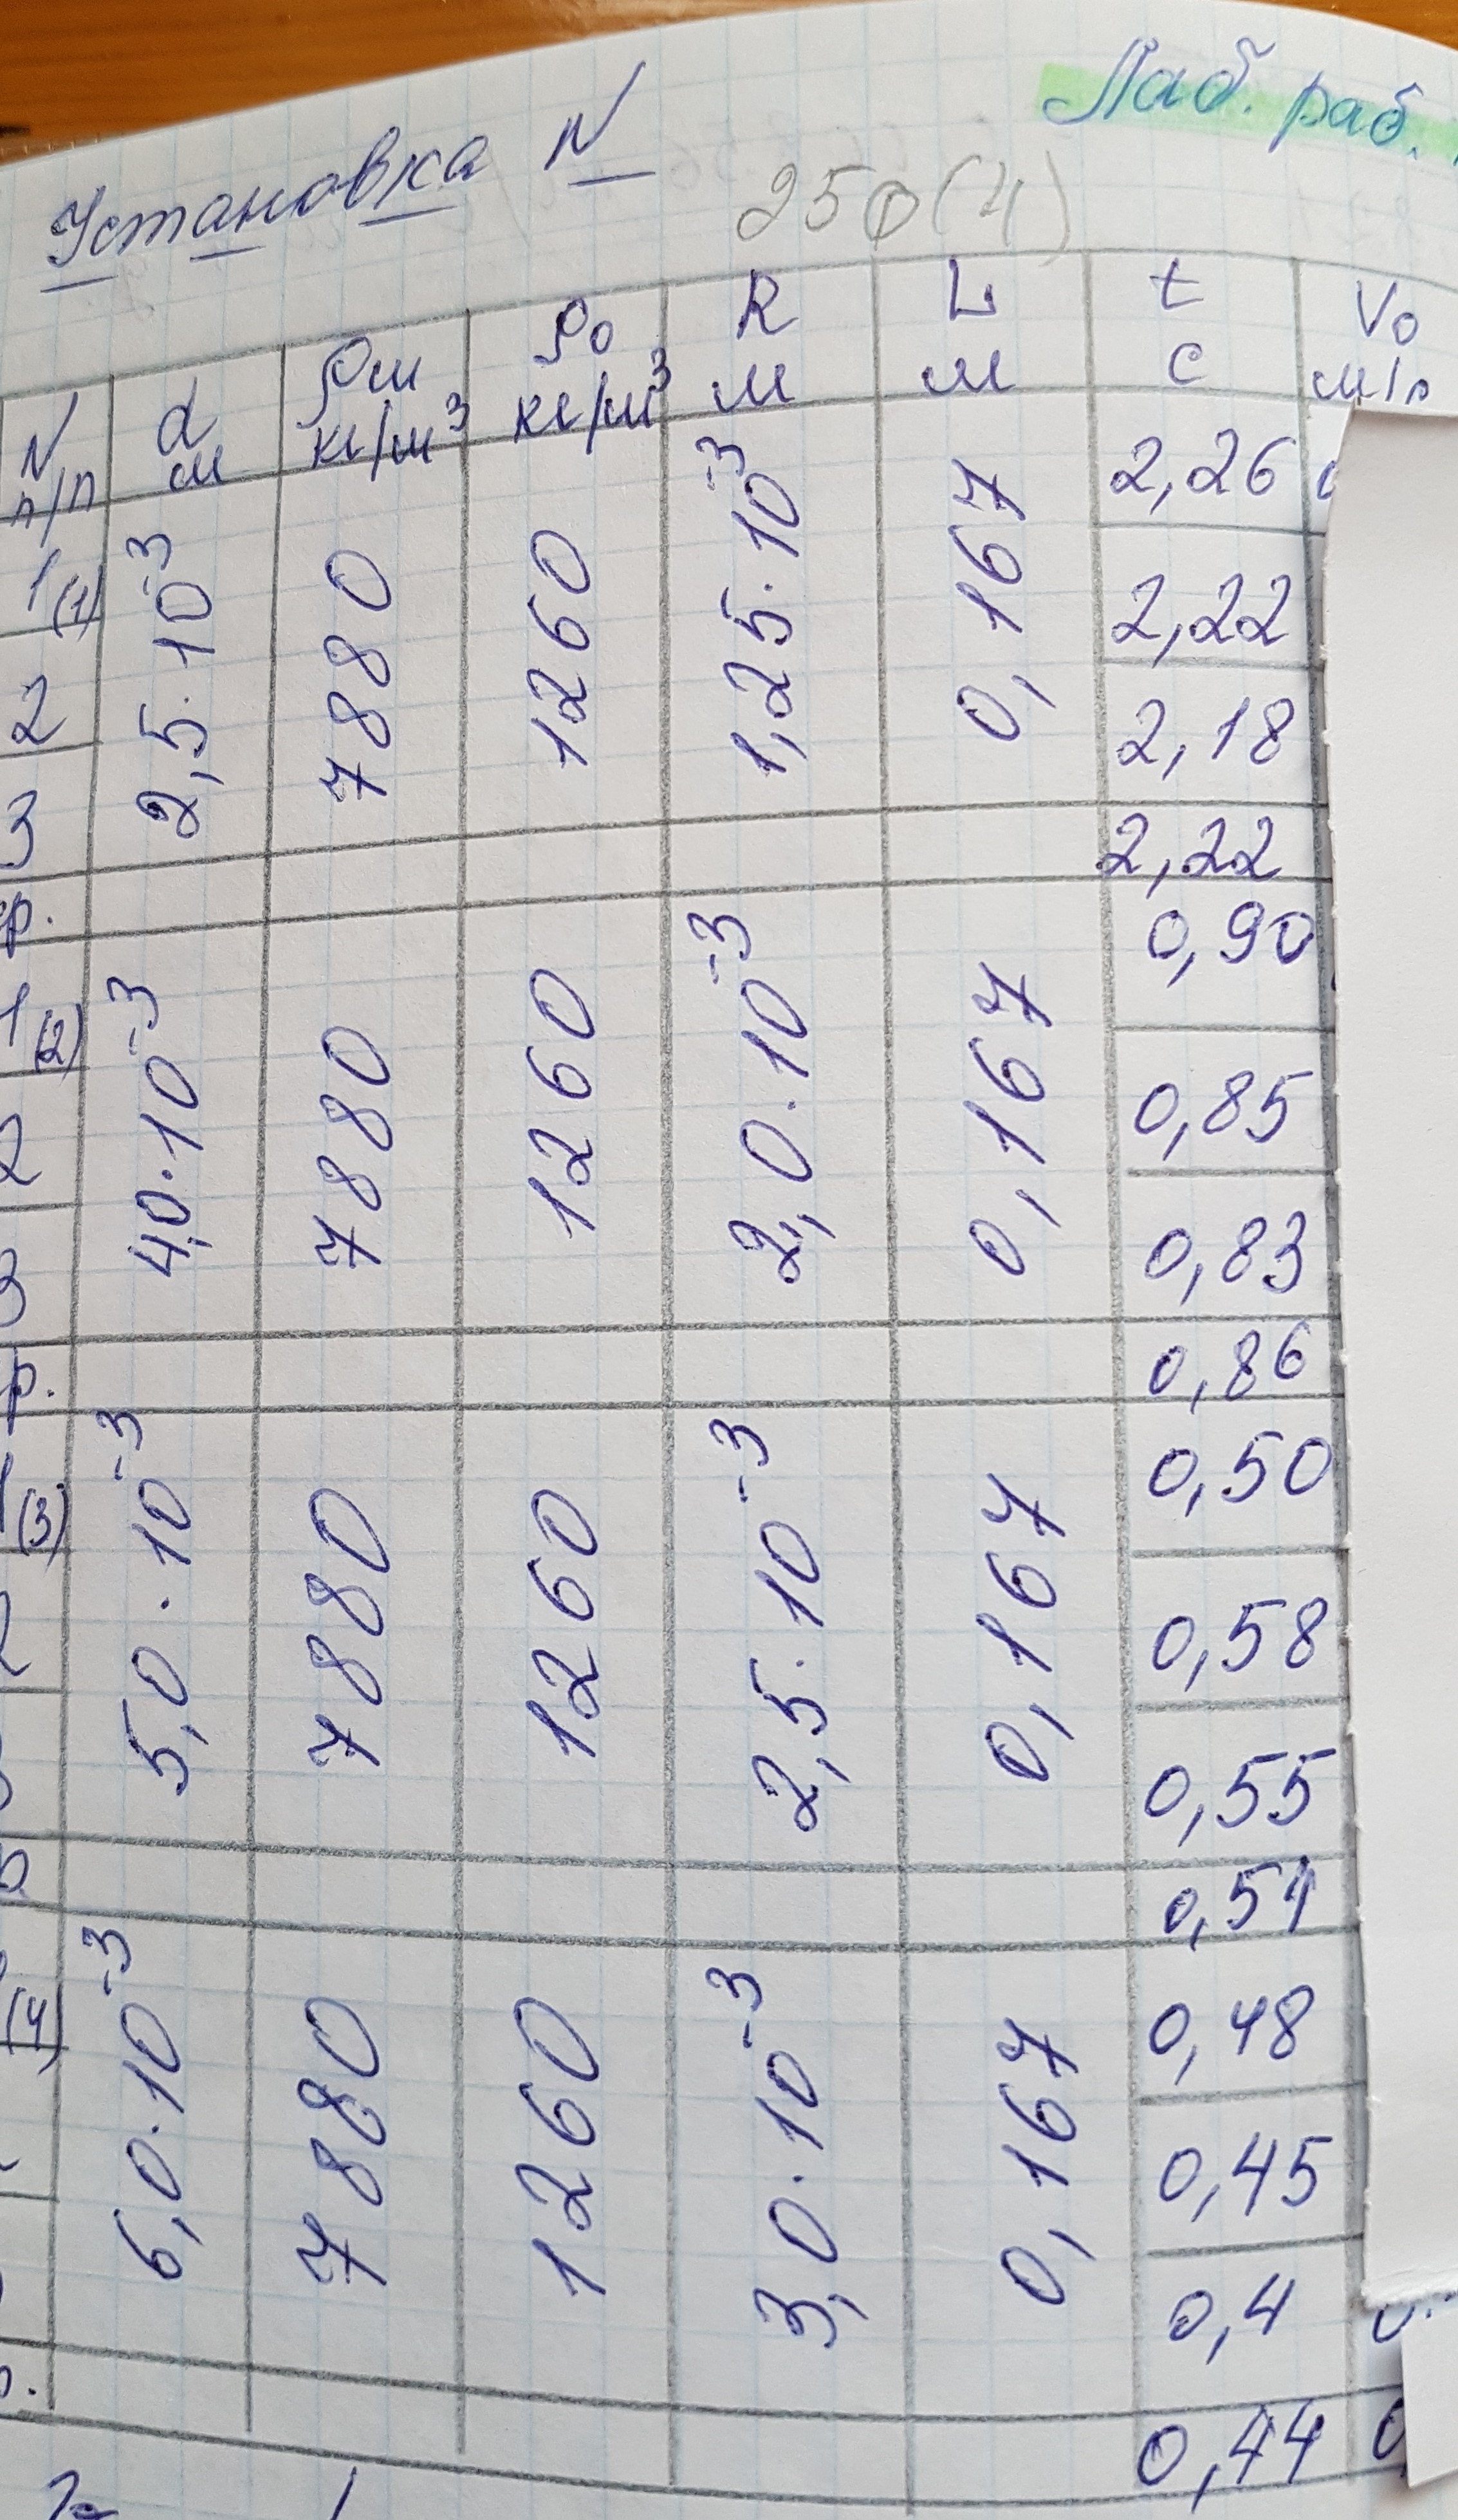 Лаб. раб.
Установка N
250(4)
N п/п d м ρш кг/м³ ρ₀ кг/м³ R м L м t с V₀
1(1) 2,5·10⁻³ 7880 1260 1,25·10⁻³ 0,167 2,26
2 2,22
3 2,18
ср. 2,22
1(2) 4,0·10⁻³ 7880 1260 2,0·10⁻³ 0,167 0,90
2 0,85
3 0,83
р. 0,86
1(3) 5,0·10⁻³ 7880 1260 2,5·10⁻³ 0,167 0,50
2 0,58
0,55
0,54
(4) 6,0·10⁻³ 7880 1260 3,0·10⁻³ 0,167 0,48
0,45
0,4
0,44